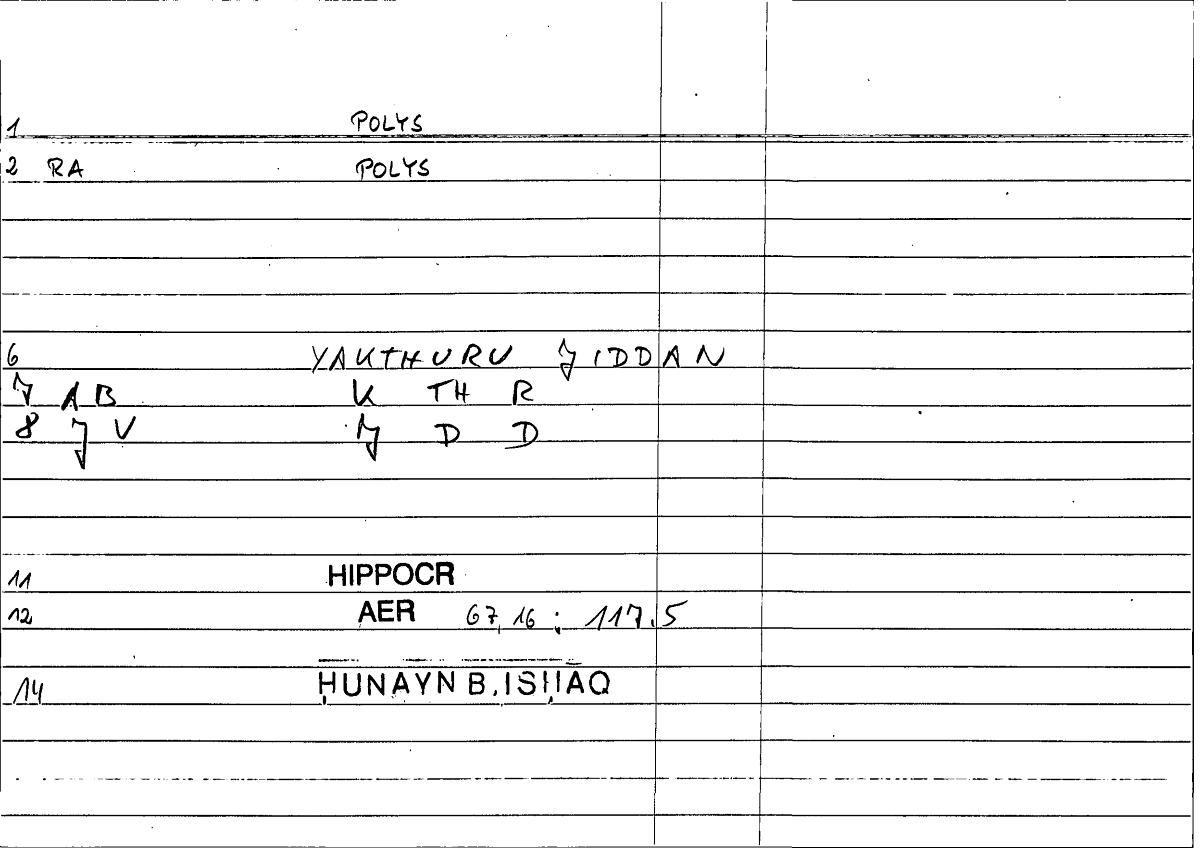 1 POLYS
2 RA POLYS
6 YAKTHURU JIDDAN
7 AB K TH R
8 J V J D D
11 HIPPOCR
12 AER 67,16 ; 117.5
14 ḤUNAYN B. ISḤĀQ